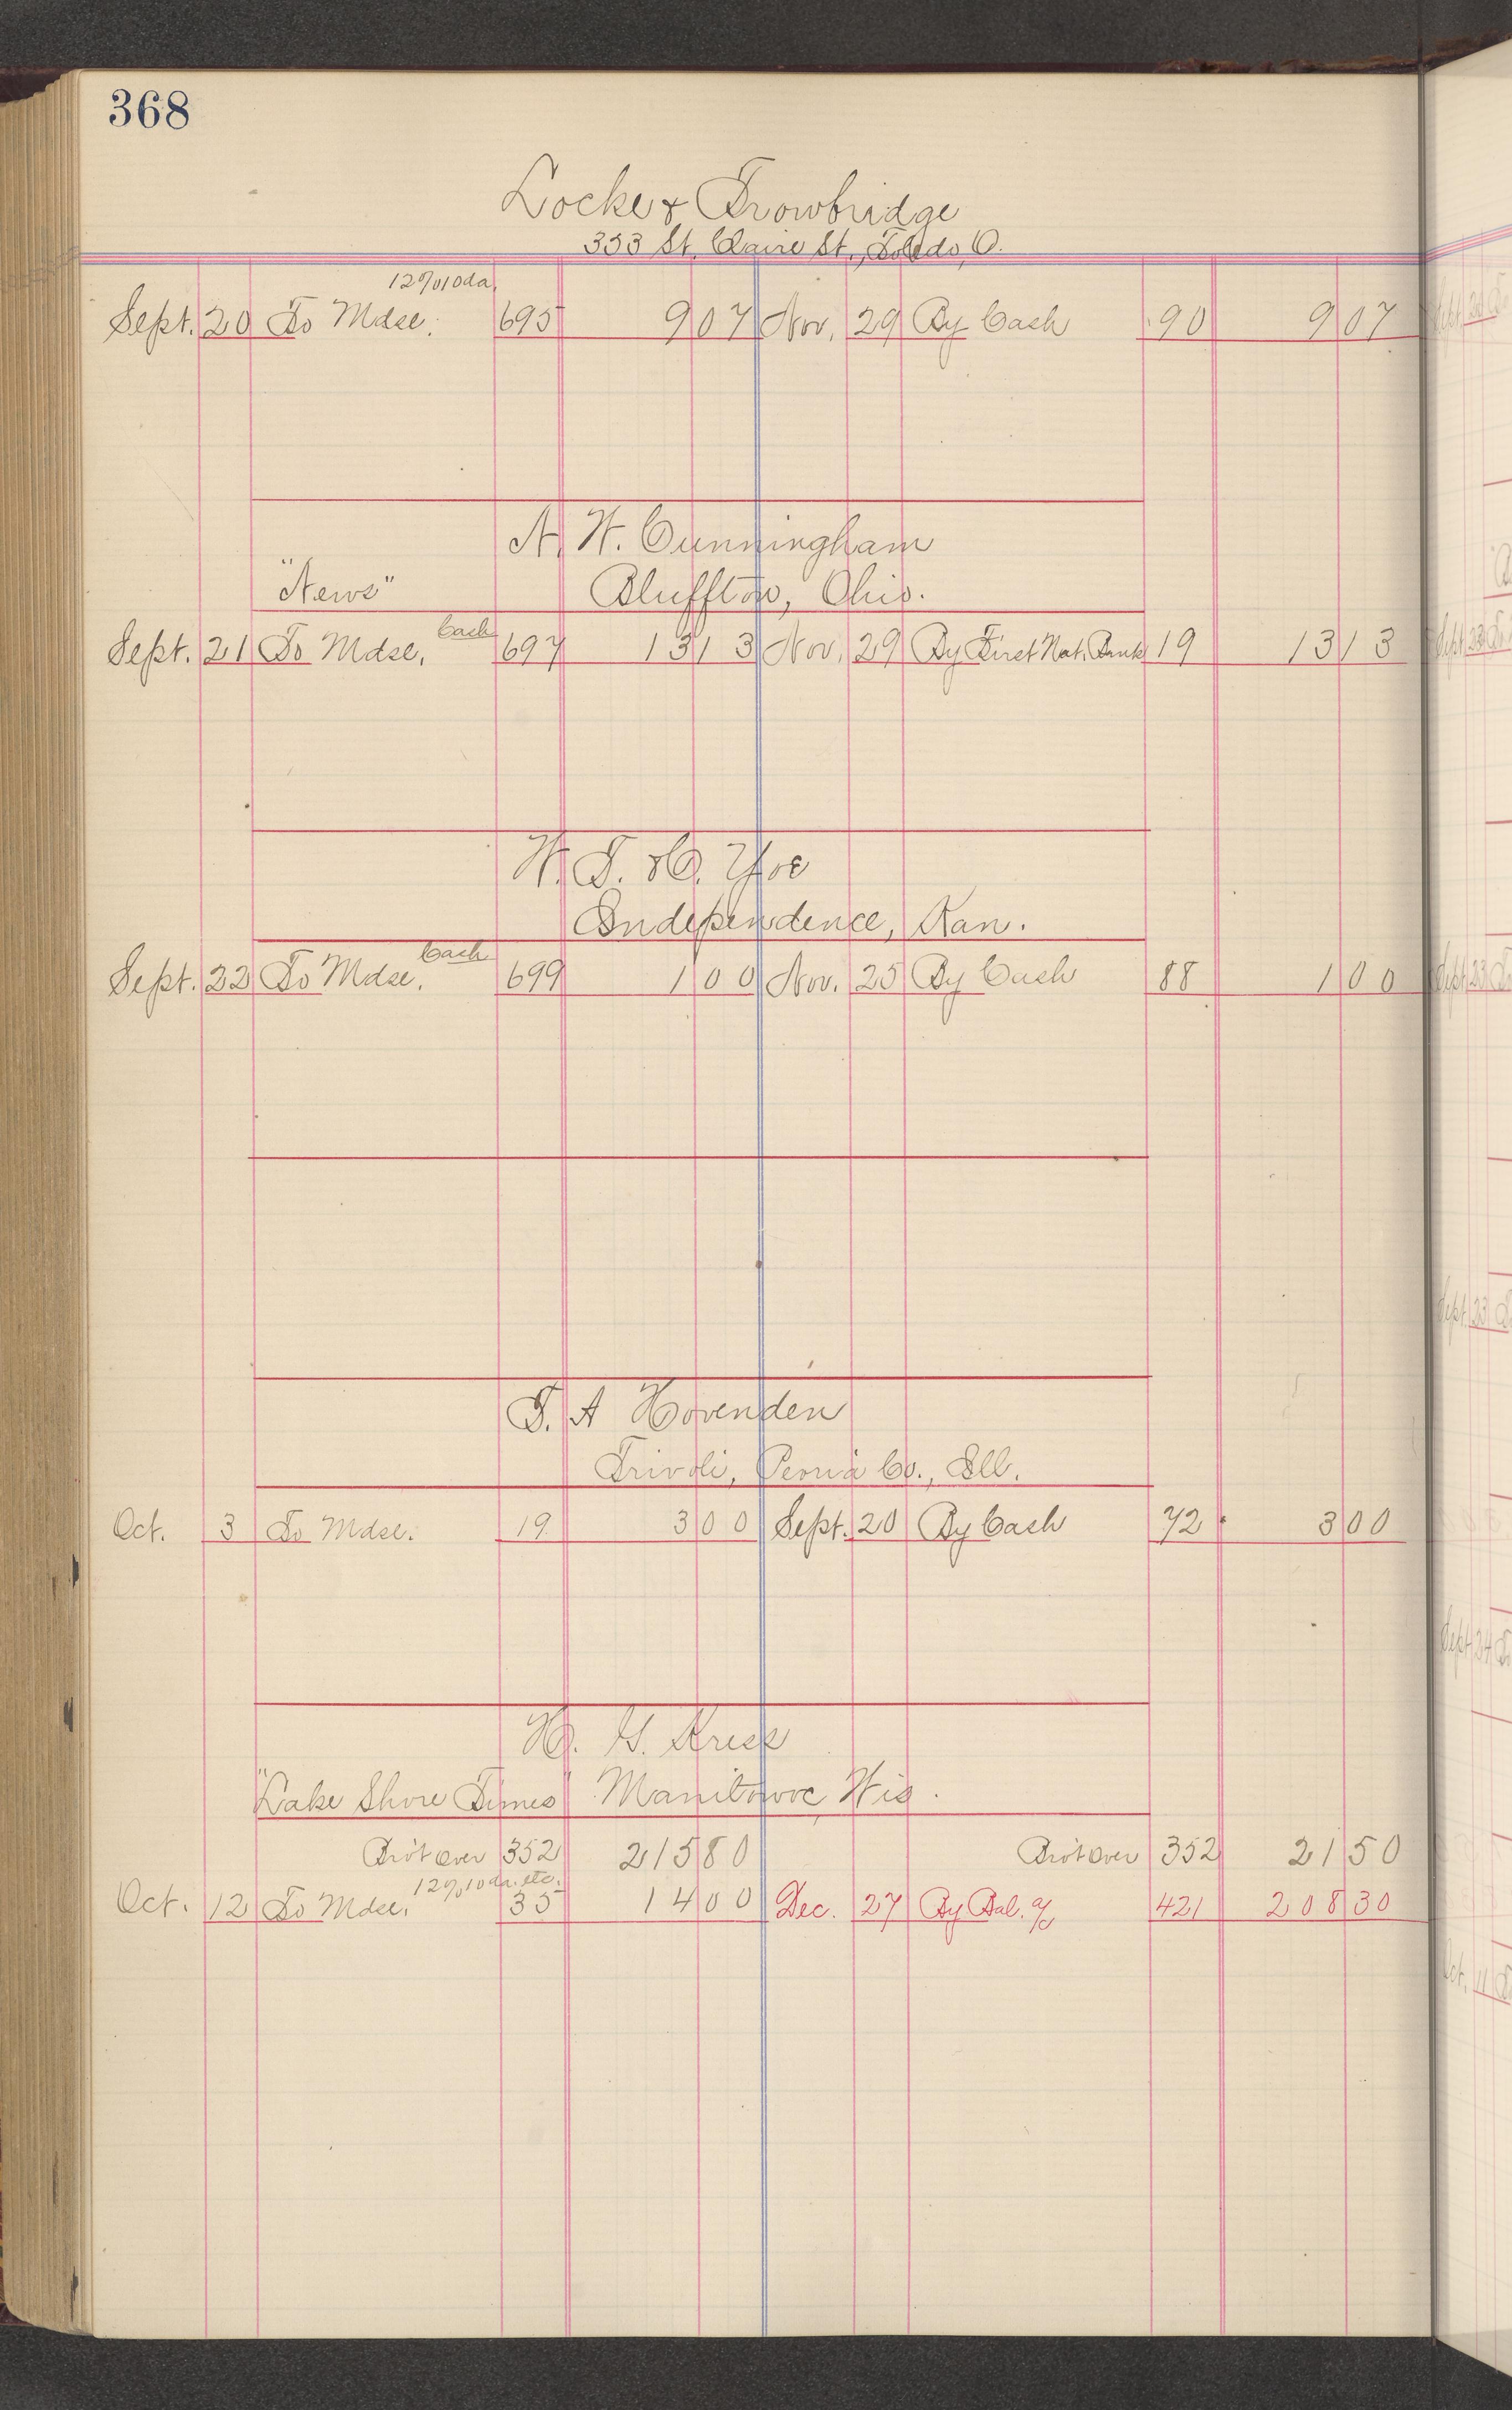 368
Locke & Trowbridge
333 St. Claire St., Toledo, O.
12% 10 da.
Sept. 20 To Mdse. 695 9 07 Nov. 29 By Cash 90 9 07
A. W. Cunningham
"News" Bluffton, Ohio.
Cash
Sept. 21 To Mdse. 697 13 13 Nov. 29 By First Nat. Bank 19 13 13
W. T. & C. Yoe
Independence, Kan.
Cash
Sept. 22 To Mdse. 699 1 00 Nov. 25 By Cash 88 1 00
T. A Hovenden
Trivoli, Peoria Co., Ill.
Oct. 3 To Mdse. 19 3 00 Sept. 20 By Cash 72 3 00
H. G. Kress
"Lake Shore Times" Manitowoc, Wis.
Bro't over 352 215 80 Bro't over 352 21 50
12% 10 da. etc.
Oct. 12 To Mdse. 35 14 00 Dec. 27 By Bal. a/c 421 208 30